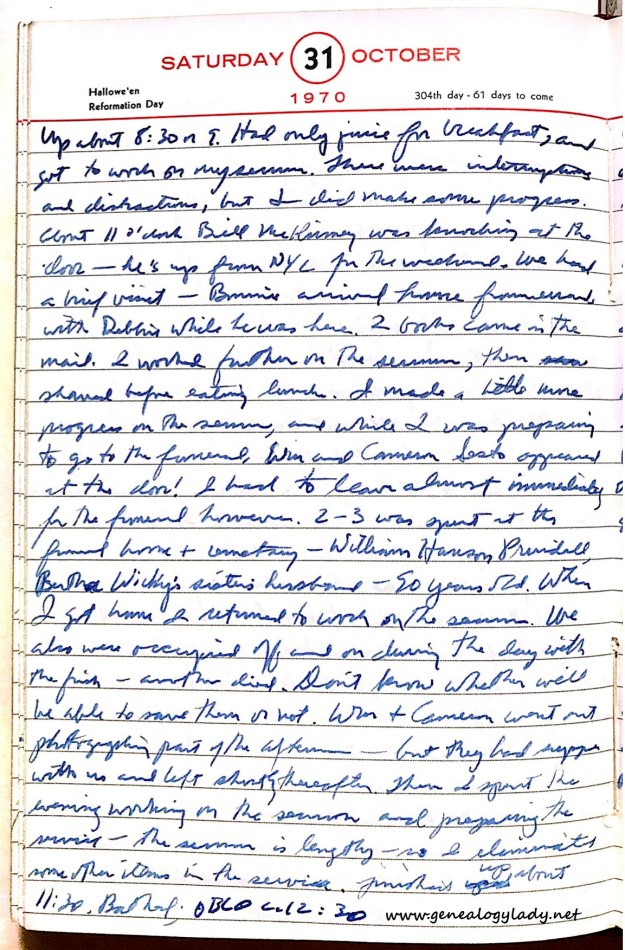 SATURDAY 31 OCTOBER
Hallowe'en
Reformation Day
1970
304th day - 61 days to come
Up about 8:30 or 9. Had only juice for breakfast, and
got to work on my sermon. There were interruptions
and distractions, but I did make some progress.
About 11 o'clock Bill McKinney was knocking at the
door — he's up from NYC for the weekend. We had
a brief visit — Bonnie arrived home from errand
with Debbie while he was here. 2 books came in the
mail. I worked further on the sermon, then
shaved before eating lunch. I made a little more
progress on the sermon, and while I was preparing
to go to the funeral, Win and Cameron appeared
at the door! I had to leave almost immediately
for the funeral however. 2-3 was spent at the
funeral home + cemetery — William Hanson
Bertha Wicky's sister's husband — 90 years old. When
I got home I returned to work on the sermon. We
also were occupied off and on during the day with
the fish — another died. Don't know whether we'll
be able to save them or not. Win + Cameron went out
photographing part of the afternoon — but they had supper
with us and left shortly thereafter. Then I spent the
evening working on the sermon and preparing the
service — the sermon is lengthy — so I eliminated
some other items in the service. Finished up about
11:30. Bathed. OBLO c. 12:30
www.genealogylady.net